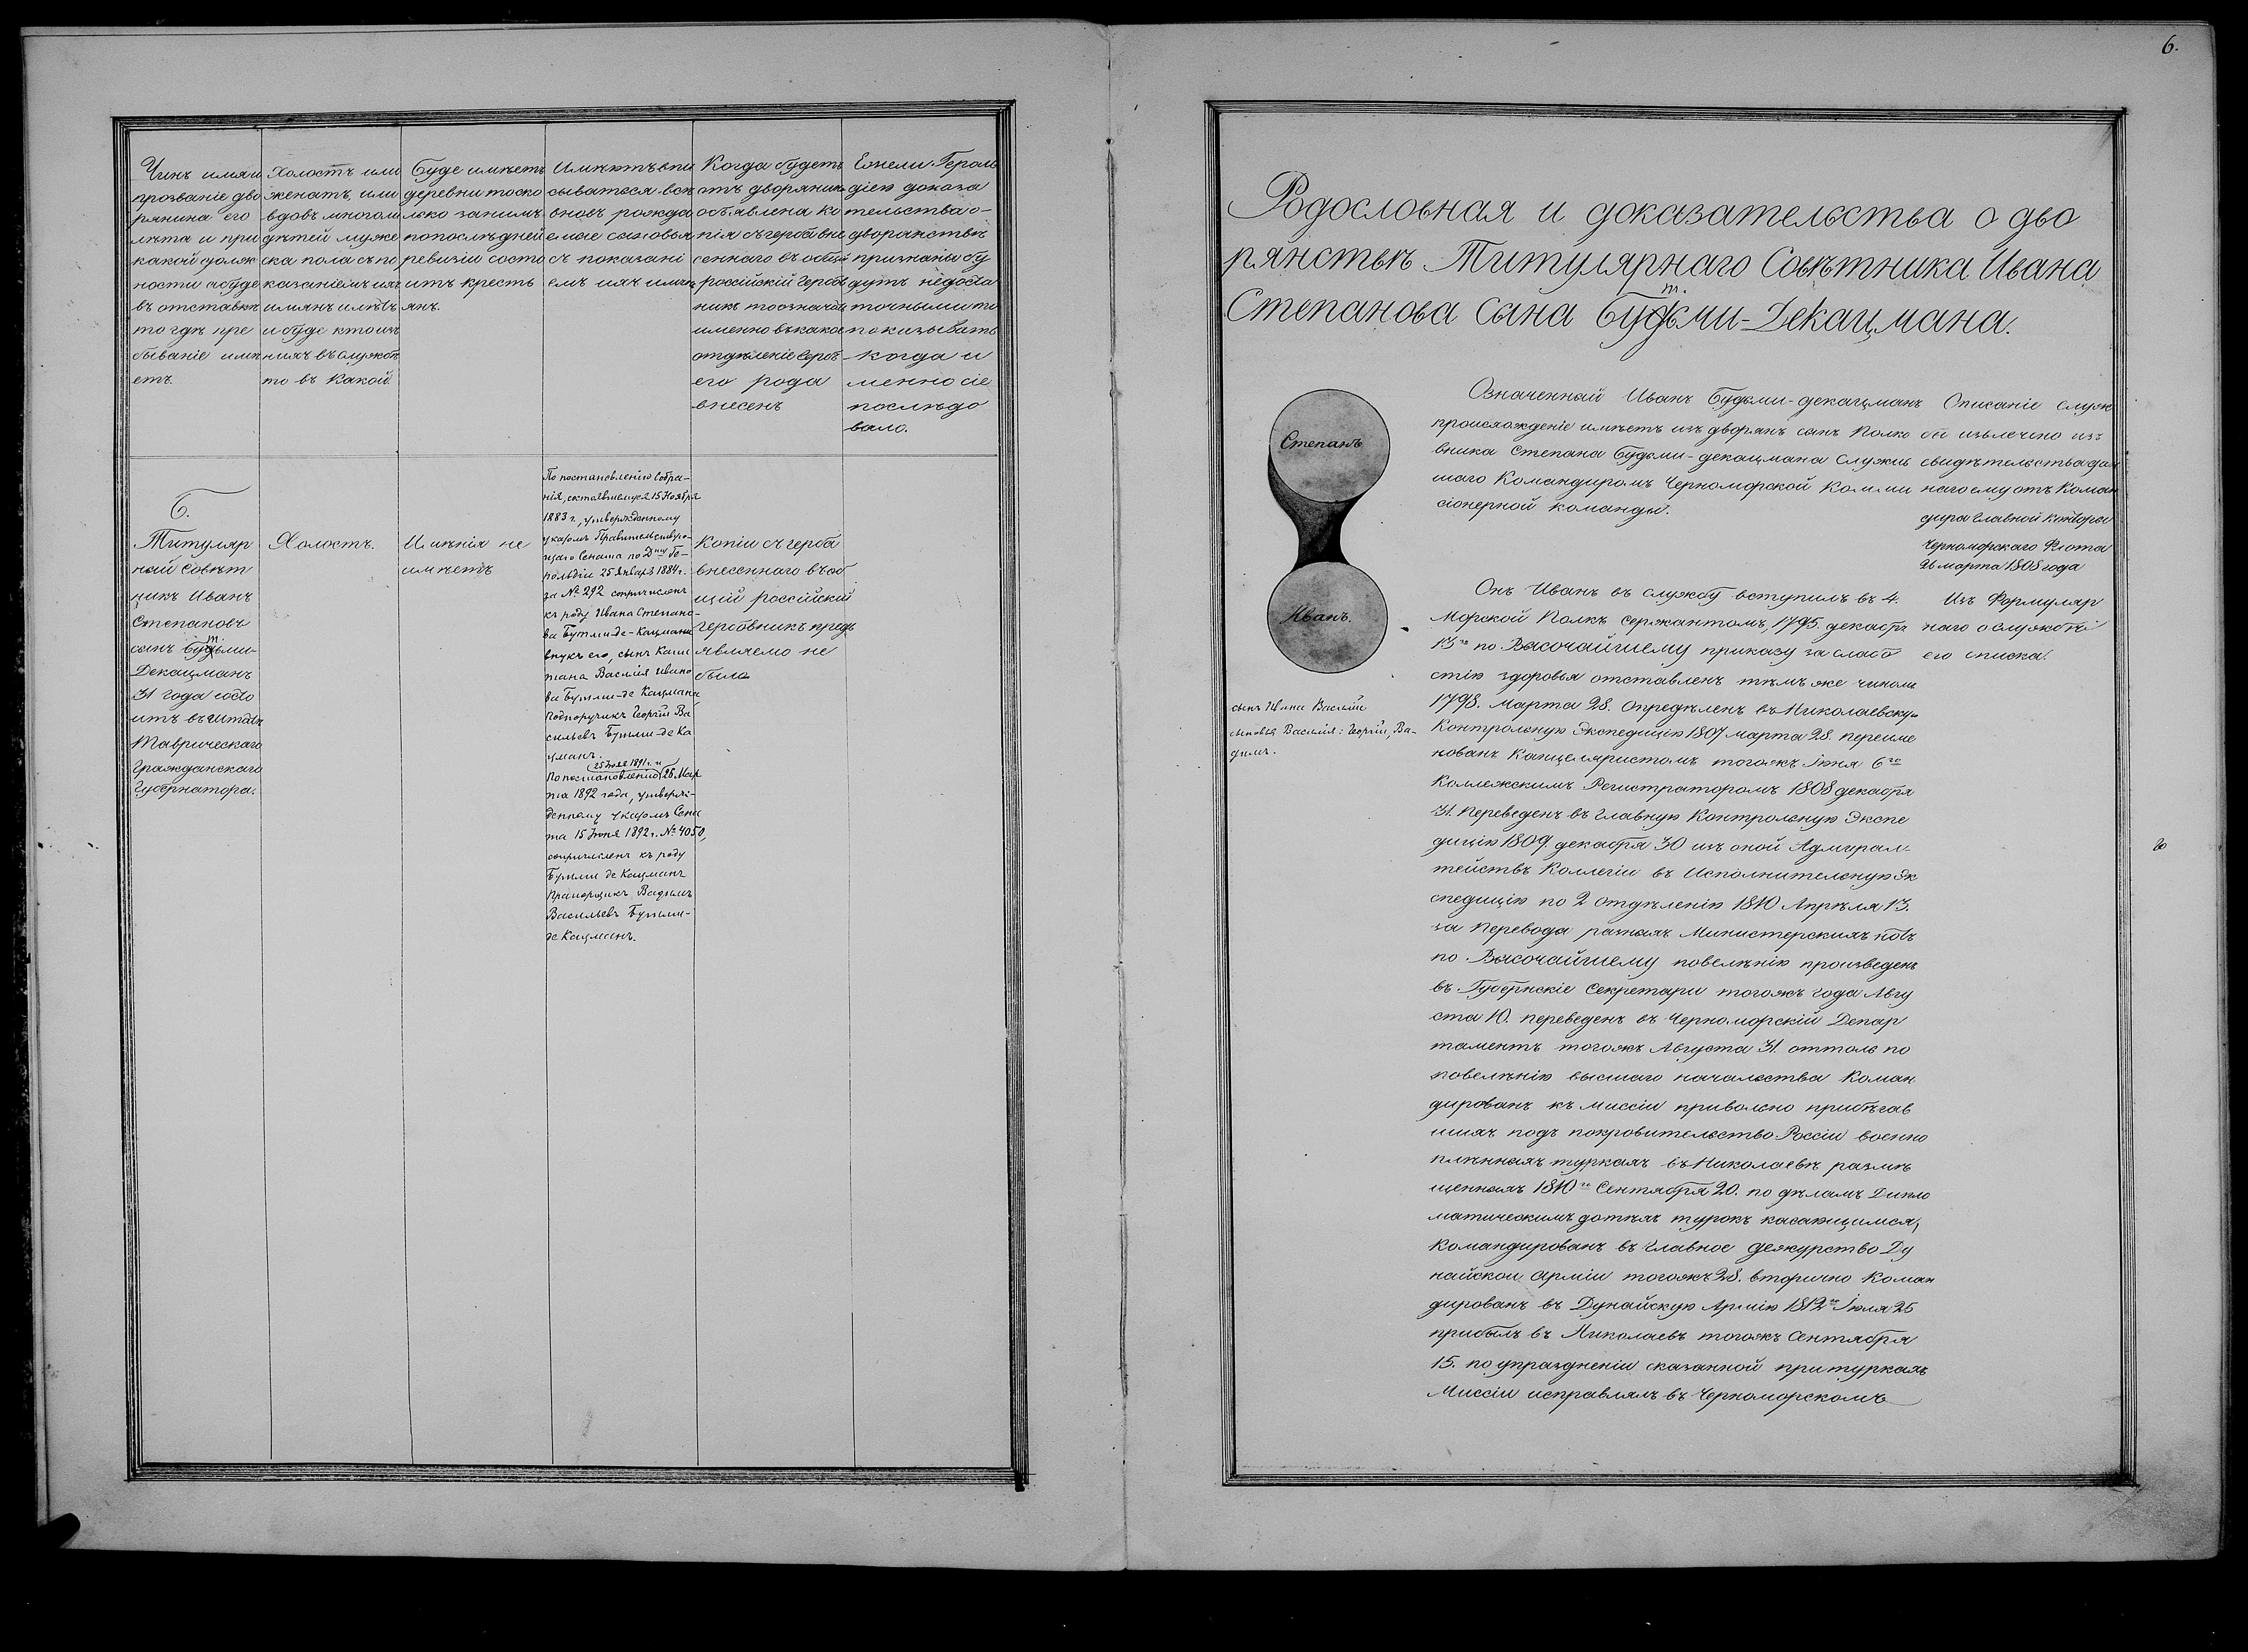 Чинъ имя и
прозваніе дво
рянина его
лѣта и при
какой долж
ности а буде
въ отставкѣ
то гдѣ пре
бываніе имѣ
етъ.
Холостъ или
женатъ, или
вдовъ многоли
дѣтей муже
ска пола съ по
казаніемъ ихъ
имянъ и лѣтъ
и буде кто изъ
нихъ въ службѣ
то въ какой.
Буде имѣетъ
деревни то ско
лько за нимъ
по послѣдней
ревизіи состо
итъ кресть
янъ.
Имѣютъ впи
сываться всѣ
вновь рожда
емые сыновья
съ показані
емъ ихъ имянъ
Когда будетъ
отъ дворянина
объявлена ко
пія съ герба вне
сеннаго въ общій
россійскій Гербов
никъ то означать
именно въ какое
отдѣленіе Гербъ
его рода
внесенъ
Ежели Героль
діею доказа
тельства о-
дворянствѣ
признаны бу
дутъ недоста
точными то
показывать
когда и
менно сіе
послѣдо
вало.
6.
Титуляр
ный Совѣт
никъ Иванъ
Степановъ
т.
сынъ Будьми-
Декацманъ
31 года состо
итъ въ штатѣ
Таврическаго
Гражданскаго
Губернатора.
Холостъ.
Имѣнія не
имѣетъ
По постановленію Собра-
нія, состоявшемуся 15 Ноября
1883 г., утвержденному
указомъ Правительствую-
щаго Сената по Дту Ге-
рольдіи 25 Января 1884 г.
за № 292 сопричисленъ
къ роду Ивана Степано-
ва Бутми-де-Кацмана
внукъ его, сынъ Капи
тана Василія Ивано
ва Бутми-де Кацмана
Подпоручикъ Георгій Ва
сильевъ Бутми-де Ка
цманъ.
25 Іюля 1891 г. и
По постановленію 26 Мар
та 1892 года, утверж-
денному указомъ Сена
та 15 Іюня 1892 г. № 4050,
сопричисленъ къ роду
Бутми де Кацманъ
Прапорщикъ Вадимъ
Васильевъ Бутми-
де Кацманъ.
Копіи съ герба
внесеннаго въ об
щій россійскій
гербовникъ предъ
являемо не
было
6.
Родословная и доказательства о дво
рянствѣ Титулярнаго Совѣтника Ивана
т.
Степанова сына Будьми-Декацмана.
Степанъ
Иванъ.
сынъ Ивана Василій
сыновья Василія: Георгій, Ва-
димъ.
Означенный Иванъ Будьми-декацманъ
происхожденіе имѣетъ изъ дворянъ сынъ Полко
вника Степана Будьми-декацмана служив
шаго Командиромъ Черноморской Комми
сіонерной команды.
Описаніе служ
бы извлечено изъ
свидѣтельства дан
наго ему отъ Коман
дира Главной Конторы
Черноморскаго Флота
26 марта 1808 года
Онъ Иванъ въ службу вступилъ въ 4.
Морской Полкъ сержантомъ, 1795. декабря
13го по Высочайшему приказу за слабо
стію здоровья отставленъ тѣмъ же чиномъ
1798. Марта 28. Опредѣленъ въ Николаевскую
Контрольную Экспедицію 1807 марта 28. переиме
нованъ Канцеляристомъ тогожъ Іюня 6го
Коллежскимъ Регистраторомъ 1808 декабря
31. Переведенъ въ Главную Контрольную Экспе
дицію 1809 декабря 30 изъ оной Адмирал-
тействъ Коллегіи въ Исполнительную Эк
спедицію по 2 отдѣленію 1810 Апрѣля 13.
за перевода разныхъ Министерскихъ нотъ
по Высочайшему повелѣнію произведенъ
въ Губернскіе Секретари тогожъ года Авгу
ста 10. переведенъ въ Черноморскій Депар
таментъ тогожъ Августа 31. оттоль по
повелѣнію высшаго начальства Коман
дированъ къ миссіи привольно прибѣгав
шихъ подъ покровительство Россіи военно
плѣнныхъ туркахъ въ Николаевѣ размѣ
щенныхъ 1810го Сентября 20. по дѣламъ Дипло
матическимъ до тѣхъ турокъ касающимся,
Командированъ въ Главное дежурство Ду
найской Арміи тогожъ 28. вторично Коман
дированъ въ Дунайскую Армію 1812го Іюля 25
прибылъ въ Николаевъ тогожъ Сентября
15. по упраздненіи сказанной при туркахъ
Миссіи исправлялъ въ Черноморскомъ
Изъ Формуляр
наго о службѣ
его списка.